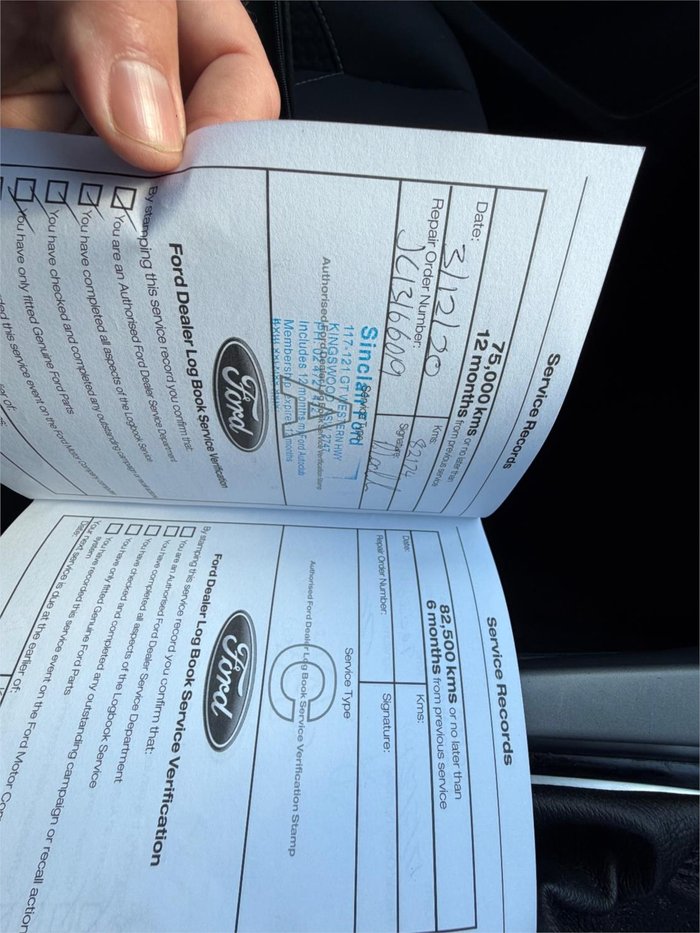 Service Records
75,000 kms or no later than
12 months from previous service
Date:
3/12/20
Kms:
82174
Repair Order Number:
JC13166019
Signature:
Service Type
Authorised Ford Dealer Log Book Service Verification Stamp
Sinclair Ford
117-121 GT. WESTERN HWY
KINGSWOOD NSW 2747
Includes 12 months myFord Autoclub
Membership. Expires 12 months
Ford
Ford Dealer Log Book Service Verification
By stamping this service record you confirm that:
You are an Authorised Ford Dealer Service Department
You have completed all aspects of the Logbook Service
You have checked and completed any outstanding campaign or
You have only fitted Genuine Ford Parts
this service event on the Ford Motor Company
Service Records
82,500 kms or no later than
6 months from previous service
Date:
Kms:
Repair Order Number:
Signature:
Service Type
C
Authorised Ford Dealer Log Book Service Verification Stamp
Ford
Ford Dealer Log Book Service Verification
By stamping this service record you confirm that:
You are an Authorised Ford Dealer Service Department
You have completed all aspects of the Logbook Service
You have checked and completed any outstanding campaign or recall action
You have only fitted Genuine Ford Parts
You have recorded this service event on the Ford Motor
system
Your next service is due at the earlier of:
Date: